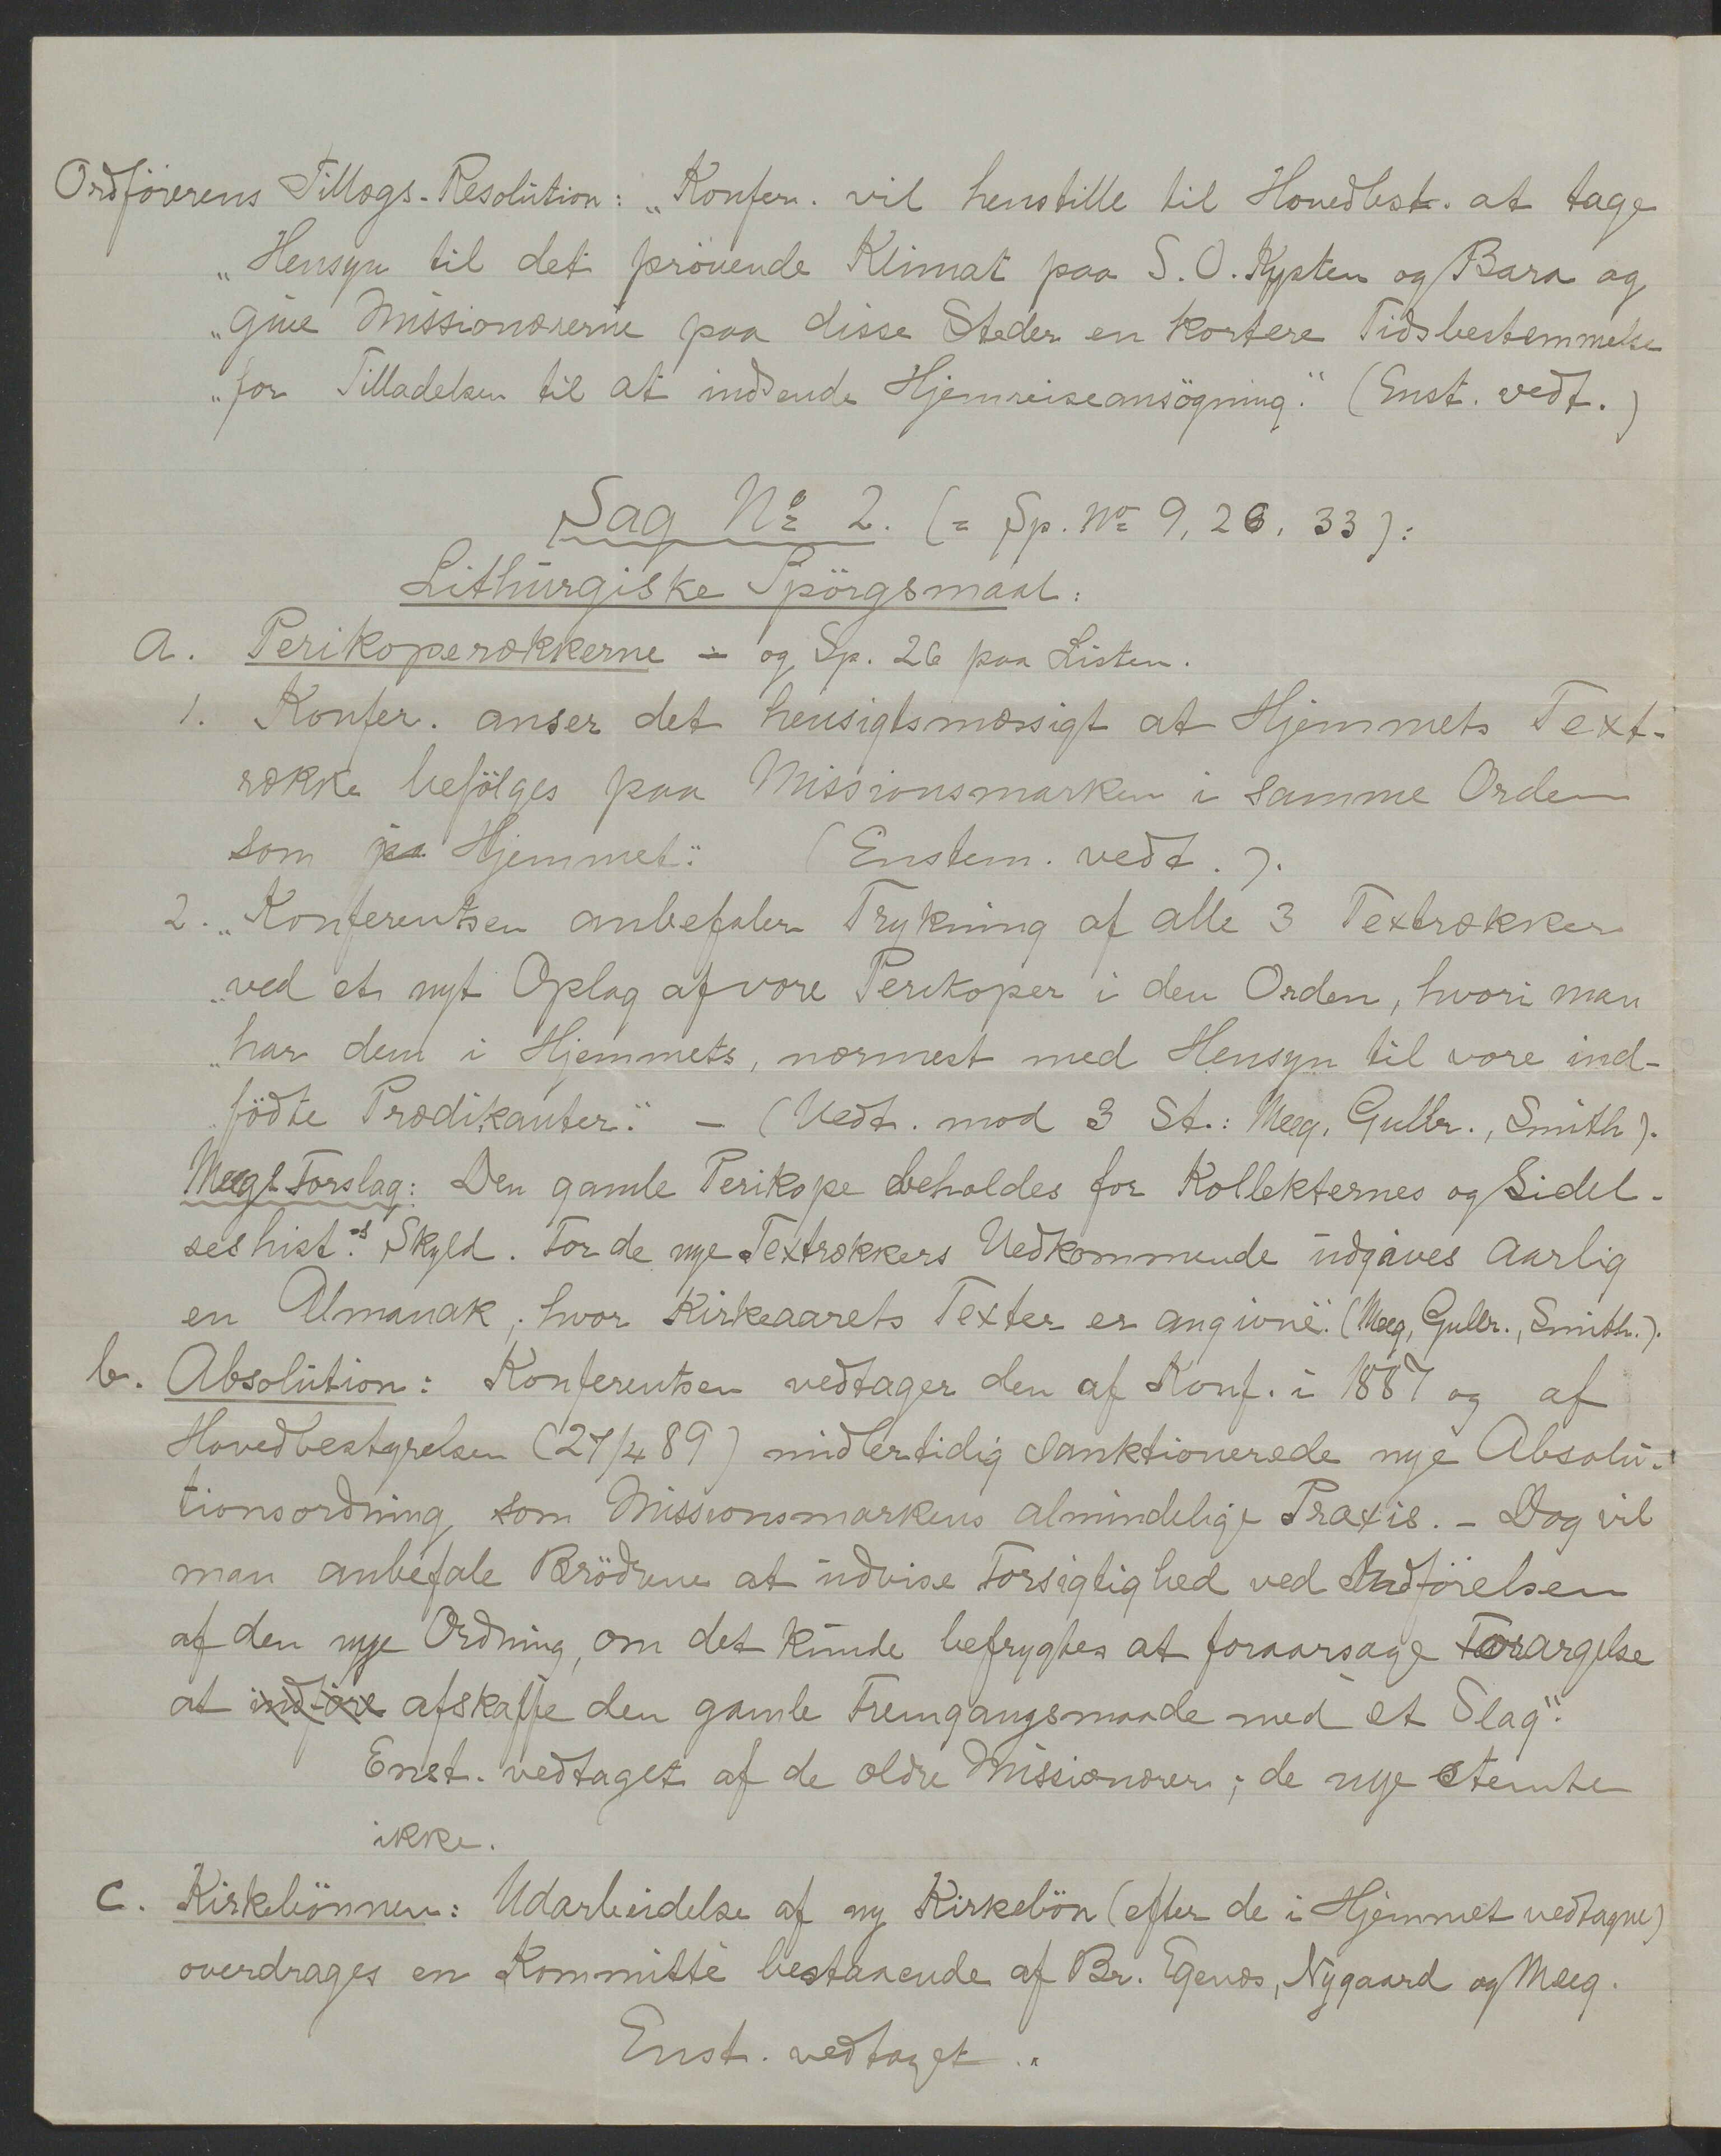 Ordförerens Tillægs-Resolution: „Konfer. vil henstille til Hovedbest. at tage
„Hensyn til det prövende Klimat paa S.O. Kysten og Bara og
„give Missionærerne paa disse Steder en kortere Tidsbestemmelse
„for Tilladelsen til at indsende Hjemreiseansögning." (Enst. vedt.)
Sag No 2. (= Sp. No 9, 26, 33):
Lithurgiske Spörgsmaal:
a. Perikoperækkerne - og Sp. 26 paa Listen.
1. Konfer. anser det hensigtsmæssigt at Hjemmets Text-
række befölges paa Missionsmarken i samme Orden
som i Hjemmet." (Enstem. vedt.).
2. „Konferentsen anbefaler Trykning af alle 3 Textrækker
„ved et nyt Oplag af vore Perikoper i den Orden, hvori man
„har dem i Hjemmets, nærmest med Hensyn til vore ind-
„födte Prædikanter." - (Vedt. mod 3 St.: Meeg, Gullr., Smith).
Meegs Forslag: Den gamle Perikope beholdes for Kollekternes og Lidel-
seshist.s Skyld. For de nye Textrækkers Vedkommende udgives aarlig
en Almanak, hvor Kirkeaarets Texter er angivne". (Meeg, Gullr., Smith.).
b. Absolution: Konferentsen vedtager den af Konf. i 1887 og af
Hovedbestyrelsen (27/4 89) midlertidig sanktionerede nye Absolu-
tionsordning som Missionsmarkens almindelige Praxis. - Dog vil
man anbefale Brödrene at udvise Forsigtighed ved Indförelsen
af den nye Ordning, om det kunde befrygtes at foraarsage Forargelse
at indföre afskaffe den gamle Fremgangsmaade med et Slag".
Enst. vedtaget af de ældre Missionærer; de nye stemte
ikke.
c. Kirkebönnen: Udarbeidelse af ny Kirkebön (efter de i Hjemmet vedtagne)
overdrages en Kommitté bestaaende af Br. Egenæs, Nygaard og Meeg.
Enst. vedtaget."